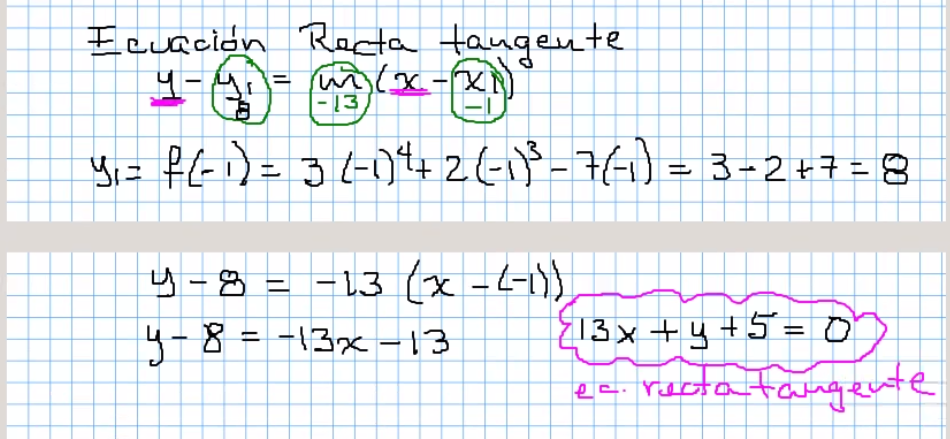 Ecuación Recta tangente
y - y₁ = m (x - x₁)
8 -13 -1
y₁ = f(-1) = 3 (-1)⁴ + 2 (-1)³ - 7(-1) = 3 - 2 + 7 = 8
y - 8 = -13 (x - (-1))
y - 8 = -13x - 13
13x + y + 5 = 0
ec. recta tangente